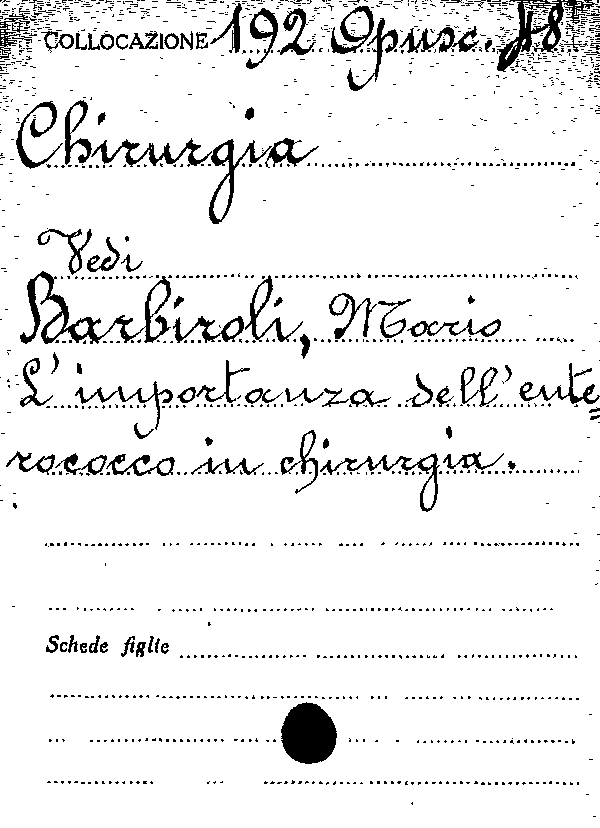 COLLOCAZIONE 192 Opusc. 48
Chirurgia
Vedi
Barbiroli, Mario
L'importanza dell'ente=
rococco in chirurgia.
Schede figlie